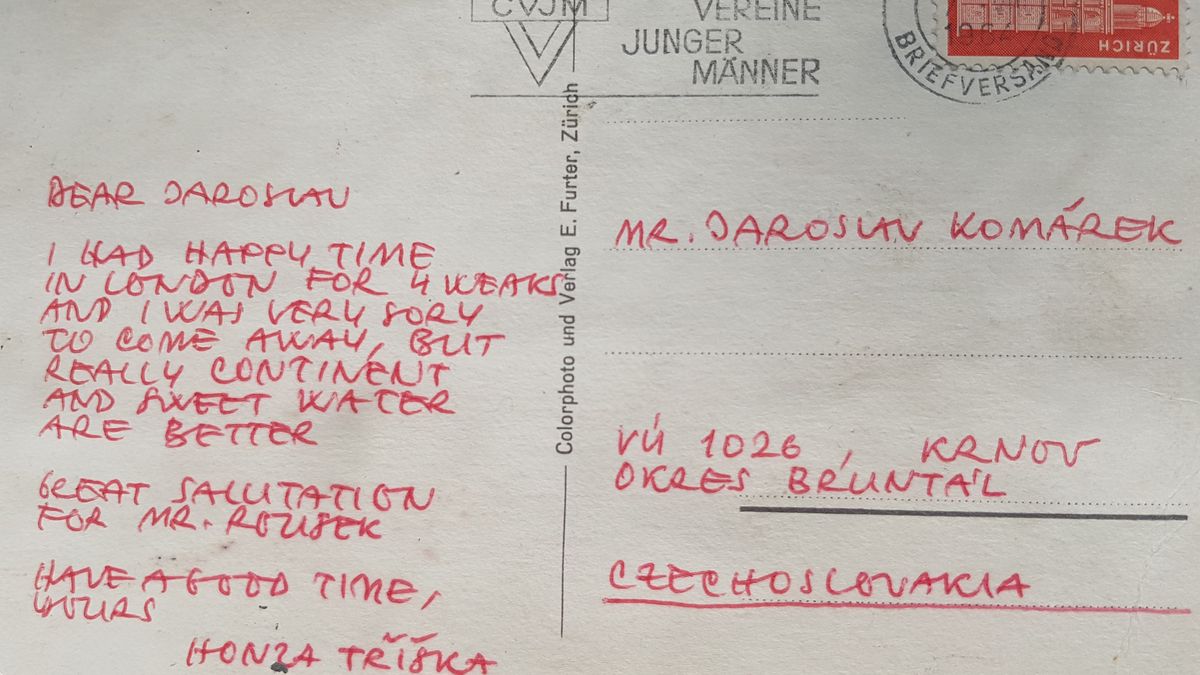 CVJM
VEREINE
JUNGER
MÄNNER
BRIEFVERSAND
ZÜRICH
Colorphoto und Verlag E. Furter, Zürich
DEAR JAROSLAV
I HAD HAPPY TIME
IN LONDON FOR 4 WEAKS
AND I WAS VERY SORY
TO COME AWAY, BUT
REALLY CONTINENT
AND SWEET WATER
ARE BETTER
GREAT SALUTATION
FOR MR. ROUSEK
HAVE A GOOD TIME,
YOURS
HONZA TŘÍŠKA
MR. JAROSLAV KOMÁREK
VÚ 1026, KRNOV
OKRES BRUNTÁL
CZECHOSLOVAKIA